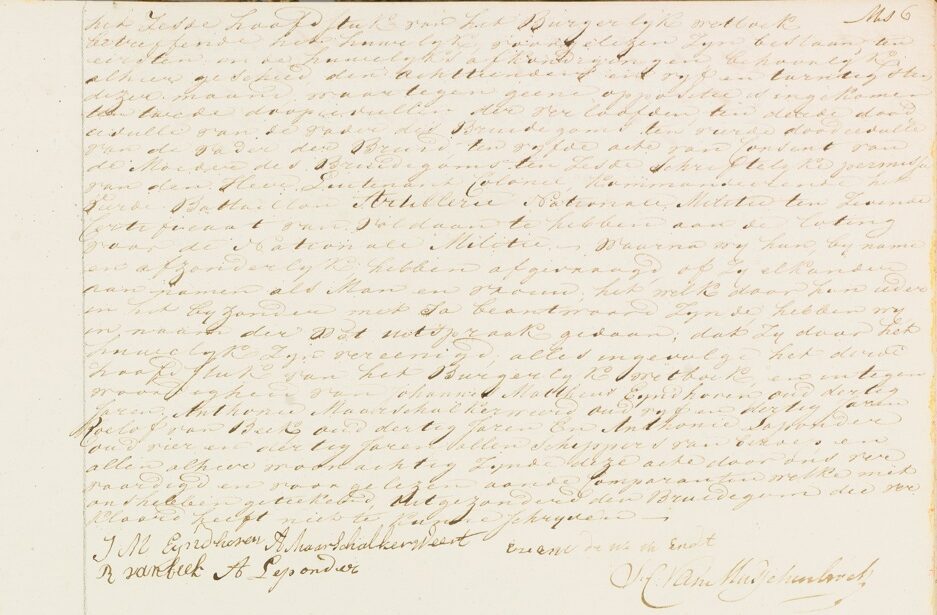 het Zesde hoofdstuk van het Burgerlyk wetboek No 6
betreffende het huwelyk, voorgelezen zyn bestaan, ten
eersten in de huwelyks afkondigingen behoorlyk
alhier geschied den achttienden en vyf en twintigsten
dezer maand, waartegen geene oppositie is ingekomen
ten tweede doopcedullen der verloofden, ten derde dood
cedulle van de vader des Bruidegoms, ten vierde doodcedulle
van de vader der Bruid ten vyfde acte van Consent van
de Moeder des Bruidegoms ten Zesde schriftelyke permissie
van den Heer Lieutenant Colonel, Kommandeerende het
Bataillon Artillerie Nationale Militie ten Zevende
Certificaat van voldaan te hebben aan de loting
voor de Nationale Militie. Waarna wy hun, by name
en afzonderlyk hebben afgevraagd of Zy elkander
aannamen als Man en vrouw, het welk door hun ieder
in het byzonder met Ja beantwoord zynde hebben wy
in naam der Wet uitspraak gedaan, dat Zy door het
huwelyk Zyn vereenigd; alles ingevolge het derde
hoofdstuk van het Burgerlyk wetboek, en in tegen
woordigheid van Johannes Mattheus Eyndhoven oud dertig
Jaren, Anthonie Maarschalkerweerd oud vyf en dertig Jaren
Roelof van Beek oud dertig Jaren En Anthonie
oud vier en dertig Jaren allen Schippers van beroep en
allen alhier woonachtig Zynde deze acte door ons ver
vaardigd en voorgelezen aan de Comparanten welke met
ons hebben getekend Uitgezonderd den Bruidegom die ver
klaard heeft niet te kunnen schryven
J M Eyndhoven A Maarschalkerweert
R van beek A